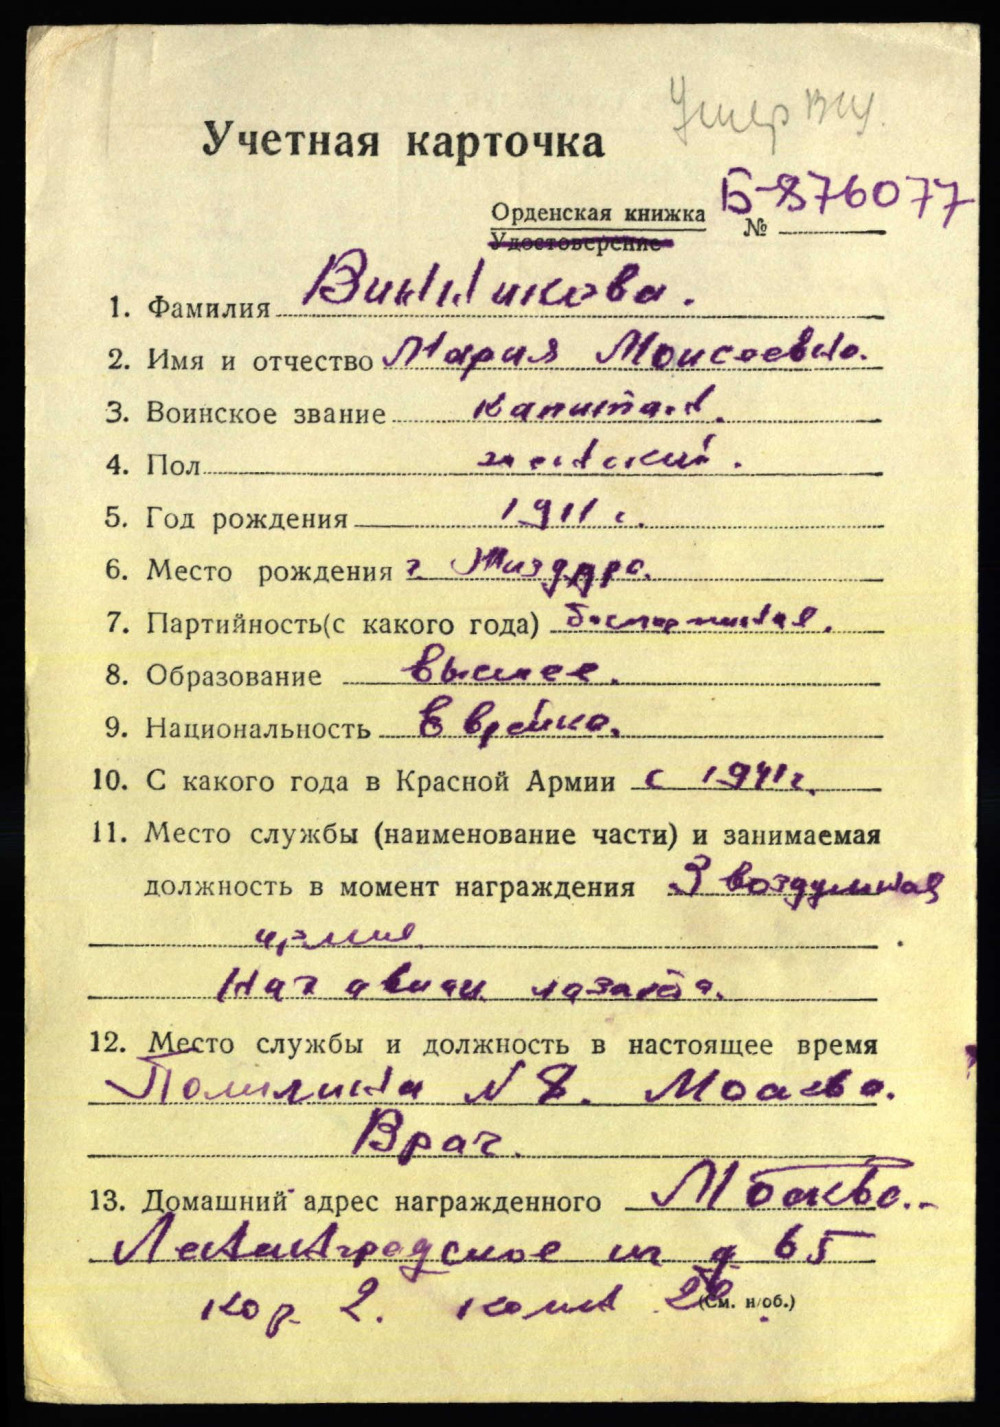 Учетная карточка
Б-876077
Орденская книжка №
Удостоверение
1. Фамилия Винникова.
2. Имя и отчество Мария Моисеевна.
3. Воинское звание капитан.
4. Пол женский.
5. Год рождения 1911 г.
6. Место рождения г Жиздра.
7. Партийность(с какого года) беспартийная.
8. Образование высшее.
9. Национальность Еврейка.
10. С какого года в Красной Армии с 1941г.
11. Место службы (наименование части) и занимаемая
должность в момент награждения 3 воздушная
армия
Нач авиа лазарета.
12. Место службы и должность в настоящее время
N 8. Москва.
Врач.
13. Домашний адрес награжденного Москва.
Ленинградское ш д 65
кор. 2. комн
(См. н/об.)